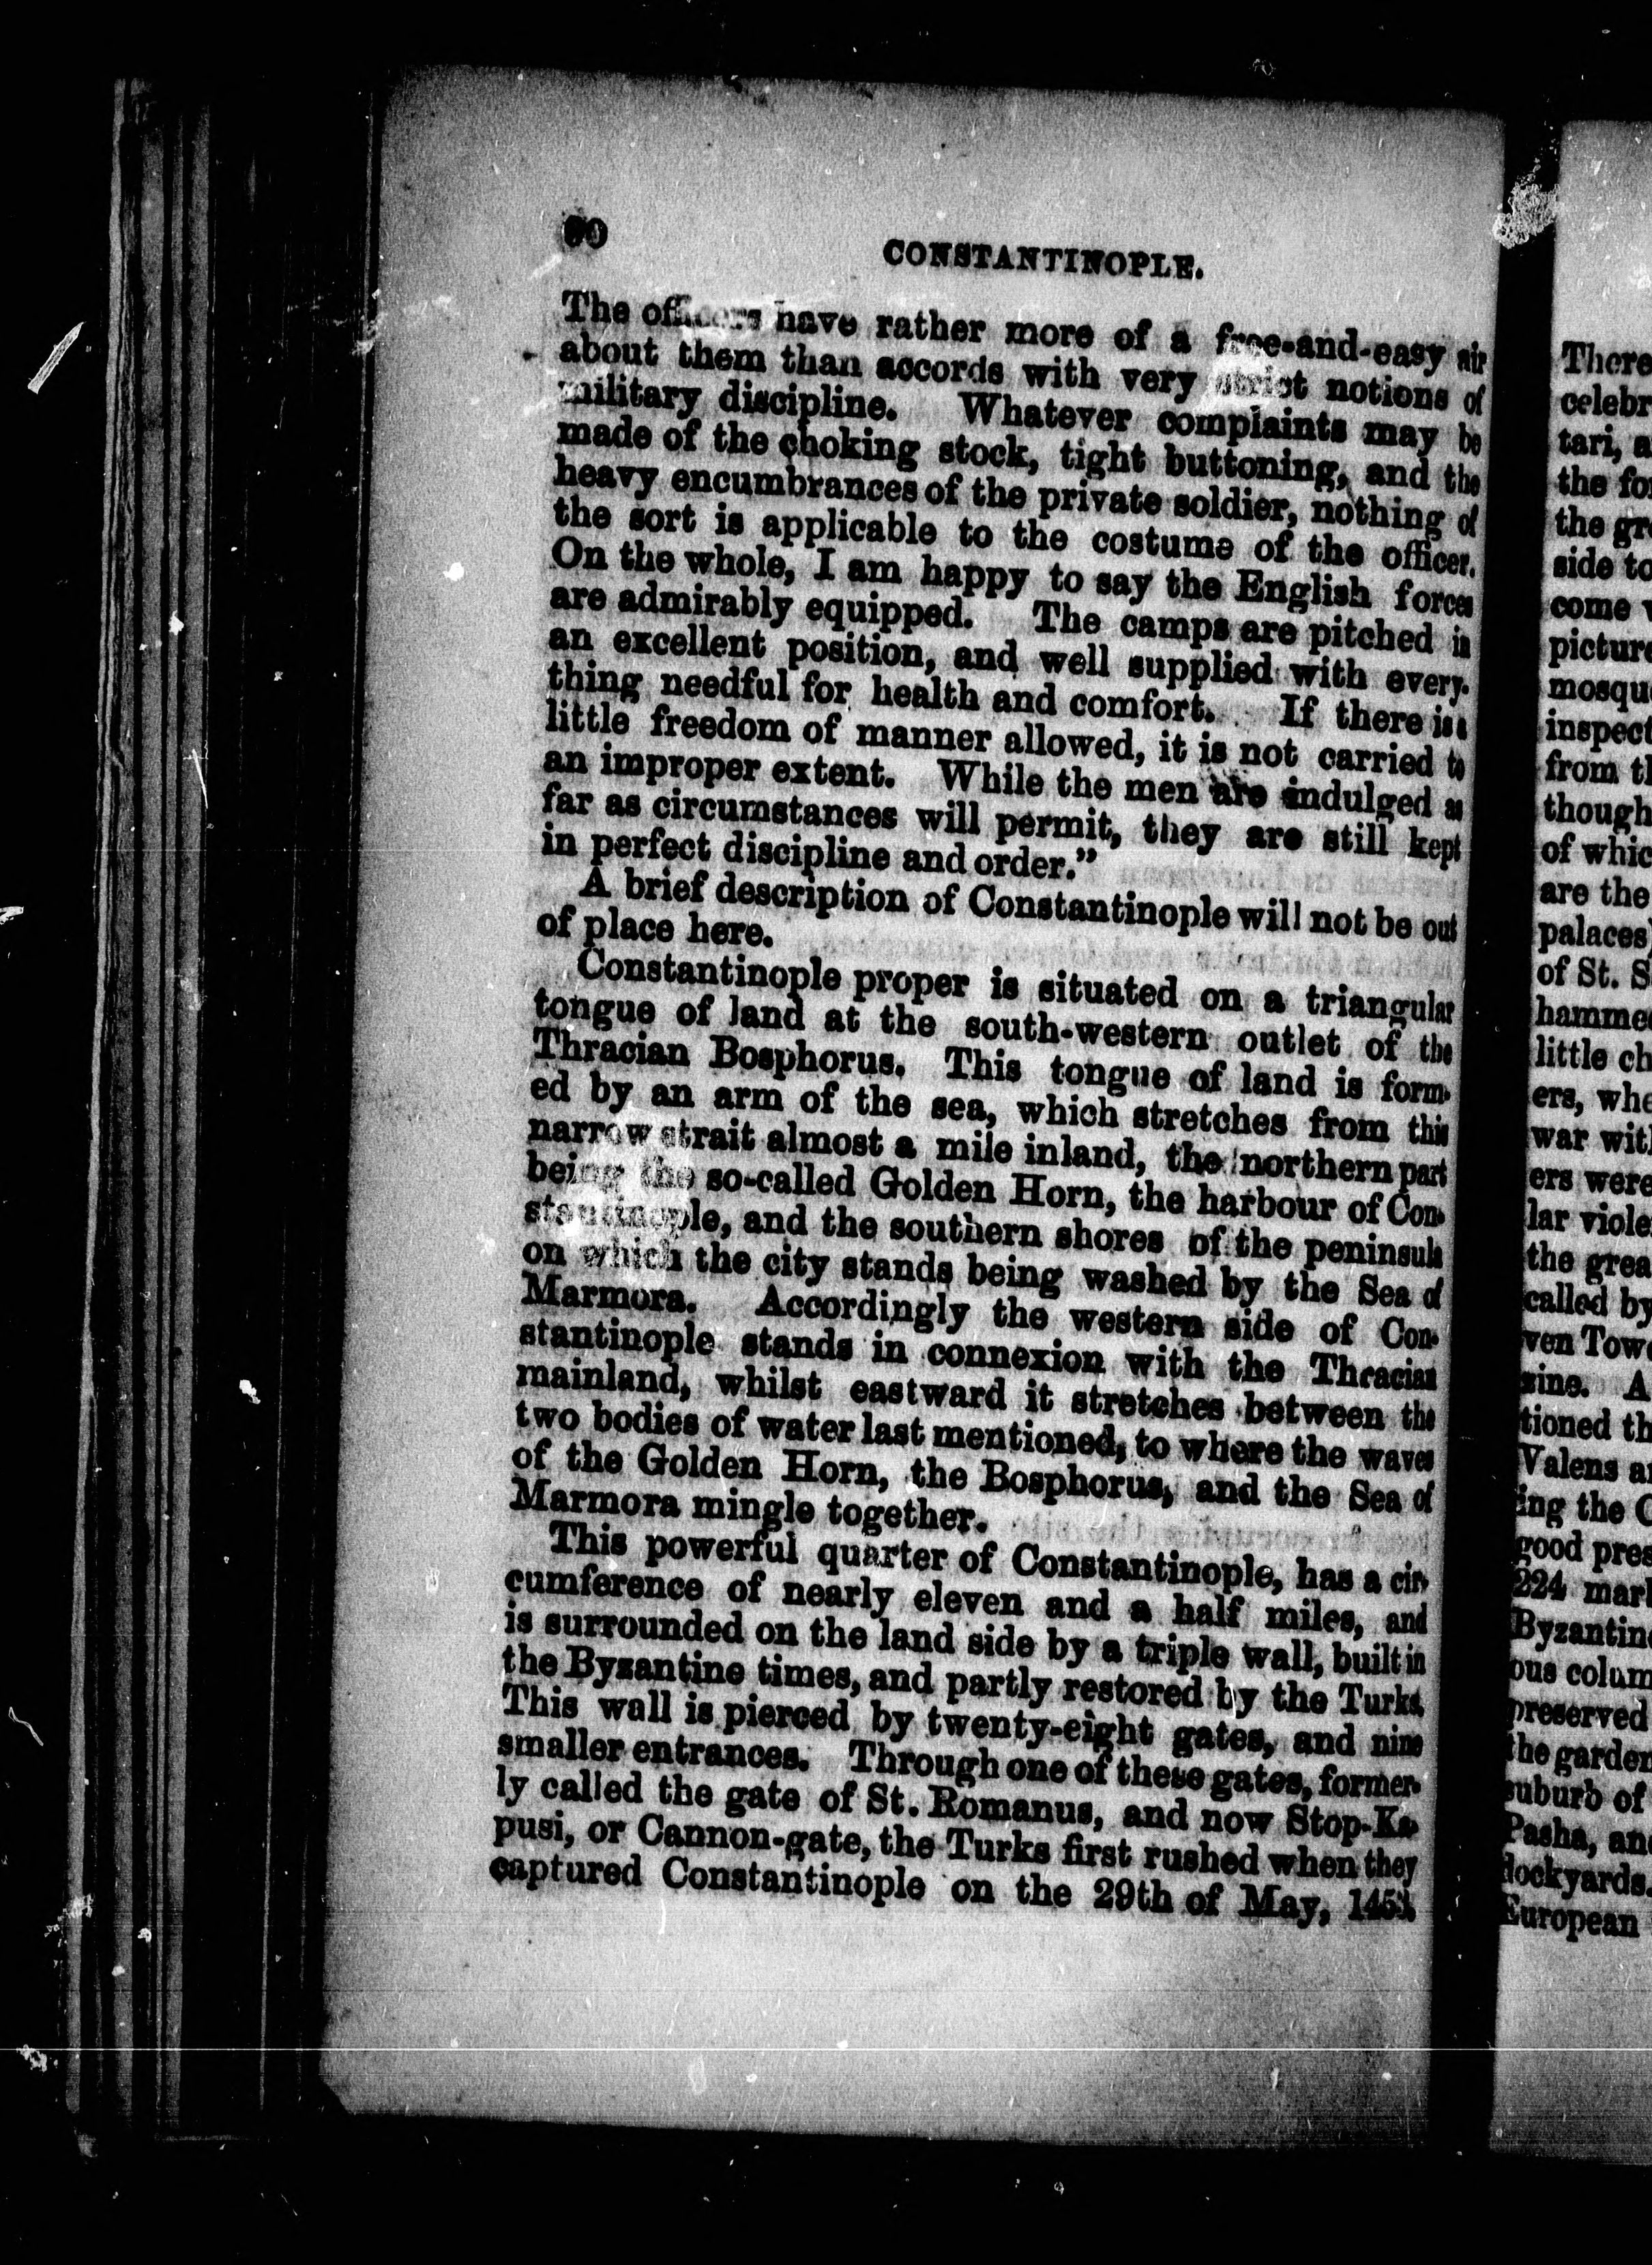 CONSTANTINOPLE.
The officers have rather more of a free-and-easy air
about them than accords with very strict notions of
military discipline. Whatever complaints may be
made of the choking stock, tight buttoning, and the
heavy encumbrances of the private soldier, nothing of
the sort is applicable to the costume of the officer.
On the whole, I am happy to say the English forces
are admirably equipped. The camps are pitched in
an excellent position, and well supplied with every-
thing needful for health and comfort. If there is a
little freedom of manner allowed, it is not carried to
an improper extent. While the men are indulged as
far as circumstances will permit, they are still kept
in perfect discipline and order.”
A brief description of Constantinople will not be out
of place here.
Constantinople proper is situated on a triangular
tongue of land at the south-western outlet of the
Thracian Bosphorus. This tongue of land is form-
ed by an arm of the sea, which stretches from this
narrow strait almost a mile inland, the northern part
being the so-called Golden Horn, the harbour of Con-
stantinople, and the southern shores of the peninsula
on which the city stands being washed by the Sea of
Marmora. Accordingly the western side of Con-
stantinople stands in connexion with the Thracian
mainland, whilst eastward it stretches between the
two bodies of water last mentioned, to where the waves
of the Golden Horn, the Bosphorus, and the Sea of
Marmora mingle together.
This powerful quarter of Constantinople, has a cir-
cumference of nearly eleven and a half miles, and
is surrounded on the land side by a triple wall, built in
the Byzantine times, and partly restored by the Turks.
This wall is pierced by twenty-eight gates, and nine
smaller entrances. Through one of these gates, former-
ly called the gate of St. Romanus, and now Stop-Ka-
pusi, or Cannon-gate, the Turks first rushed when they
captured Constantinople on the 29th of May, 1453.
There
celebr
tari, a
the fo
the gr
side to
come
picture
mosqu
inspect
from th
though
of whic
are the
palaces
of St. S
hamme
little ch
ers, whe
war with
ers were
lar viole
the grea
called by
ven Tow
zine. A
tioned th
Valens a
ing the
good pres
224 mar
Byzantin
ous colum
preserved
the garden
suburb of
Pasha, an
dockyards.
European